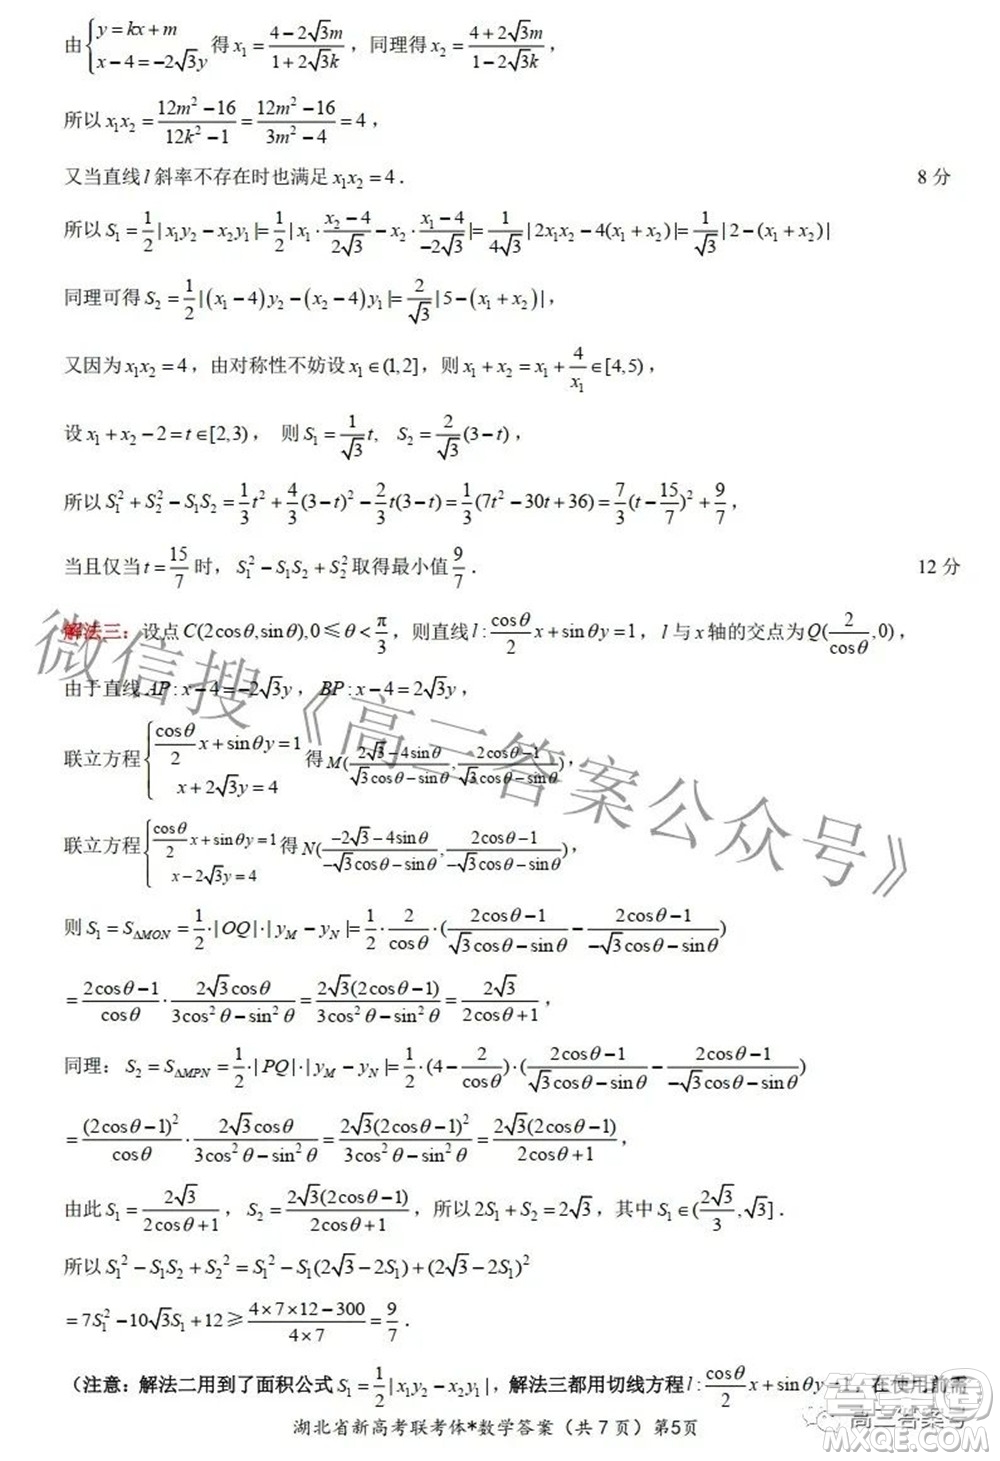 由{y=kx+m, x-4=-2√3y 得 x₁=(4-2√3m)/(1+2√3k)，同理得 x₂=(4+2√3m)/(1-2√3k)，
所以 x₁x₂=(12m²-16)/(12k²-1)=(12m²-16)/(3m²-4)=4，
又当直线 l 斜率不存在时也满足 x₁x₂=4． 8 分
所以 S₁=1/2|x₁y₂-x₂y₁|=1/2|x₁·(x₂-4)/(2√3)-x₂·(x₁-4)/(-2√3)|=1/(4√3)|2x₁x₂-4(x₁+x₂)|=1/√3|2-(x₁+x₂)|
同理可得 S₂=1/2|(x₁-4)y₂-(x₂-4)y₁|=2/√3|5-(x₁+x₂)|，
又因为 x₁x₂=4，由对称性不妨设 x₁∈(1,2]，则 x₁+x₂=x₁+4/x₁∈[4,5)，
设 x₁+x₂-2=t∈[2,3)， 则 S₁=1/√3 t, S₂=2/√3(3-t)，
所以 S₁²+S₂²-S₁S₂=1/3t²+4/3(3-t)²-2/3t(3-t)=1/3(7t²-30t+36)=7/3(t-15/7)²+9/7，
当且仅当 t=15/7 时，S₁²-S₁S₂+S₂²取得最小值 9/7． 12 分
解法三：设点 C(2cosθ,sinθ),0≤θ<π/3，则直线 l:cosθ/2 x+sinθy=1，l 与 x 轴的交点为 Q(2/cosθ,0)，
由于直线 AP:x-4=-2√3y，BP:x-4=2√3y，
联立方程{cosθ/2 x+sinθy=1, x+2√3y=4 得 M((2√3-4sinθ)/(√3cosθ-sinθ),(2cosθ-1)/(√3cosθ-sinθ))，
联立方程{cosθ/2 x+sinθy=1, x-2√3y=4 得 N((-2√3-4sinθ)/(-√3cosθ-sinθ),(2cosθ-1)/(-√3cosθ-sinθ))，
则 S₁=S_ΔMON=1/2·|OQ|·|y_M-y_N|=1/2·2/cosθ·((2cosθ-1)/(√3cosθ-sinθ)-(2cosθ-1)/(-√3cosθ-sinθ))
=(2cosθ-1)/cosθ·2√3cosθ/(3cos²θ-sin²θ)=2√3(2cosθ-1)/(4cos²θ-1)=2√3/(2cosθ+1)，
同理：S₂=S_ΔMPN=1/2·|PQ|·|y_M-y_N|=1/2·(4-2/cosθ)·((2cosθ-1)/(√3cosθ-sinθ)-(2cosθ-1)/(-√3cosθ-sinθ))
=(2cosθ-1)²/cosθ·2√3cosθ/(3cos²θ-sin²θ)=2√3(2cosθ-1)²/(4cos²θ-1)=2√3(2cosθ-1)/(2cosθ+1)，
由此 S₁=2√3/(2cosθ+1)，S₂=2√3(2cosθ-1)/(2cosθ+1)，所以 2S₁+S₂=2√3，其中 S₁∈(2√3/3,√3]．
所以 S₁²-S₁S₂+S₂²=S₁²-S₁(2√3-2S₁)+(2√3-2S₁)²
=7S₁²-10√3S₁+12≥(4×7×12-300)/(4×7)=9/7．
（注意：解法二用到了面积公式 S₁=1/2|x₁y₂-x₂y₁|，解法三都用切线方程 l:cosθ/2 x+sinθy=1，在使用前需
湖北省新高考联考体*数学答案（共 7 页）第5页
微信搜《高三答案公众号》
高三答案号
答案圈
MXQE.COM